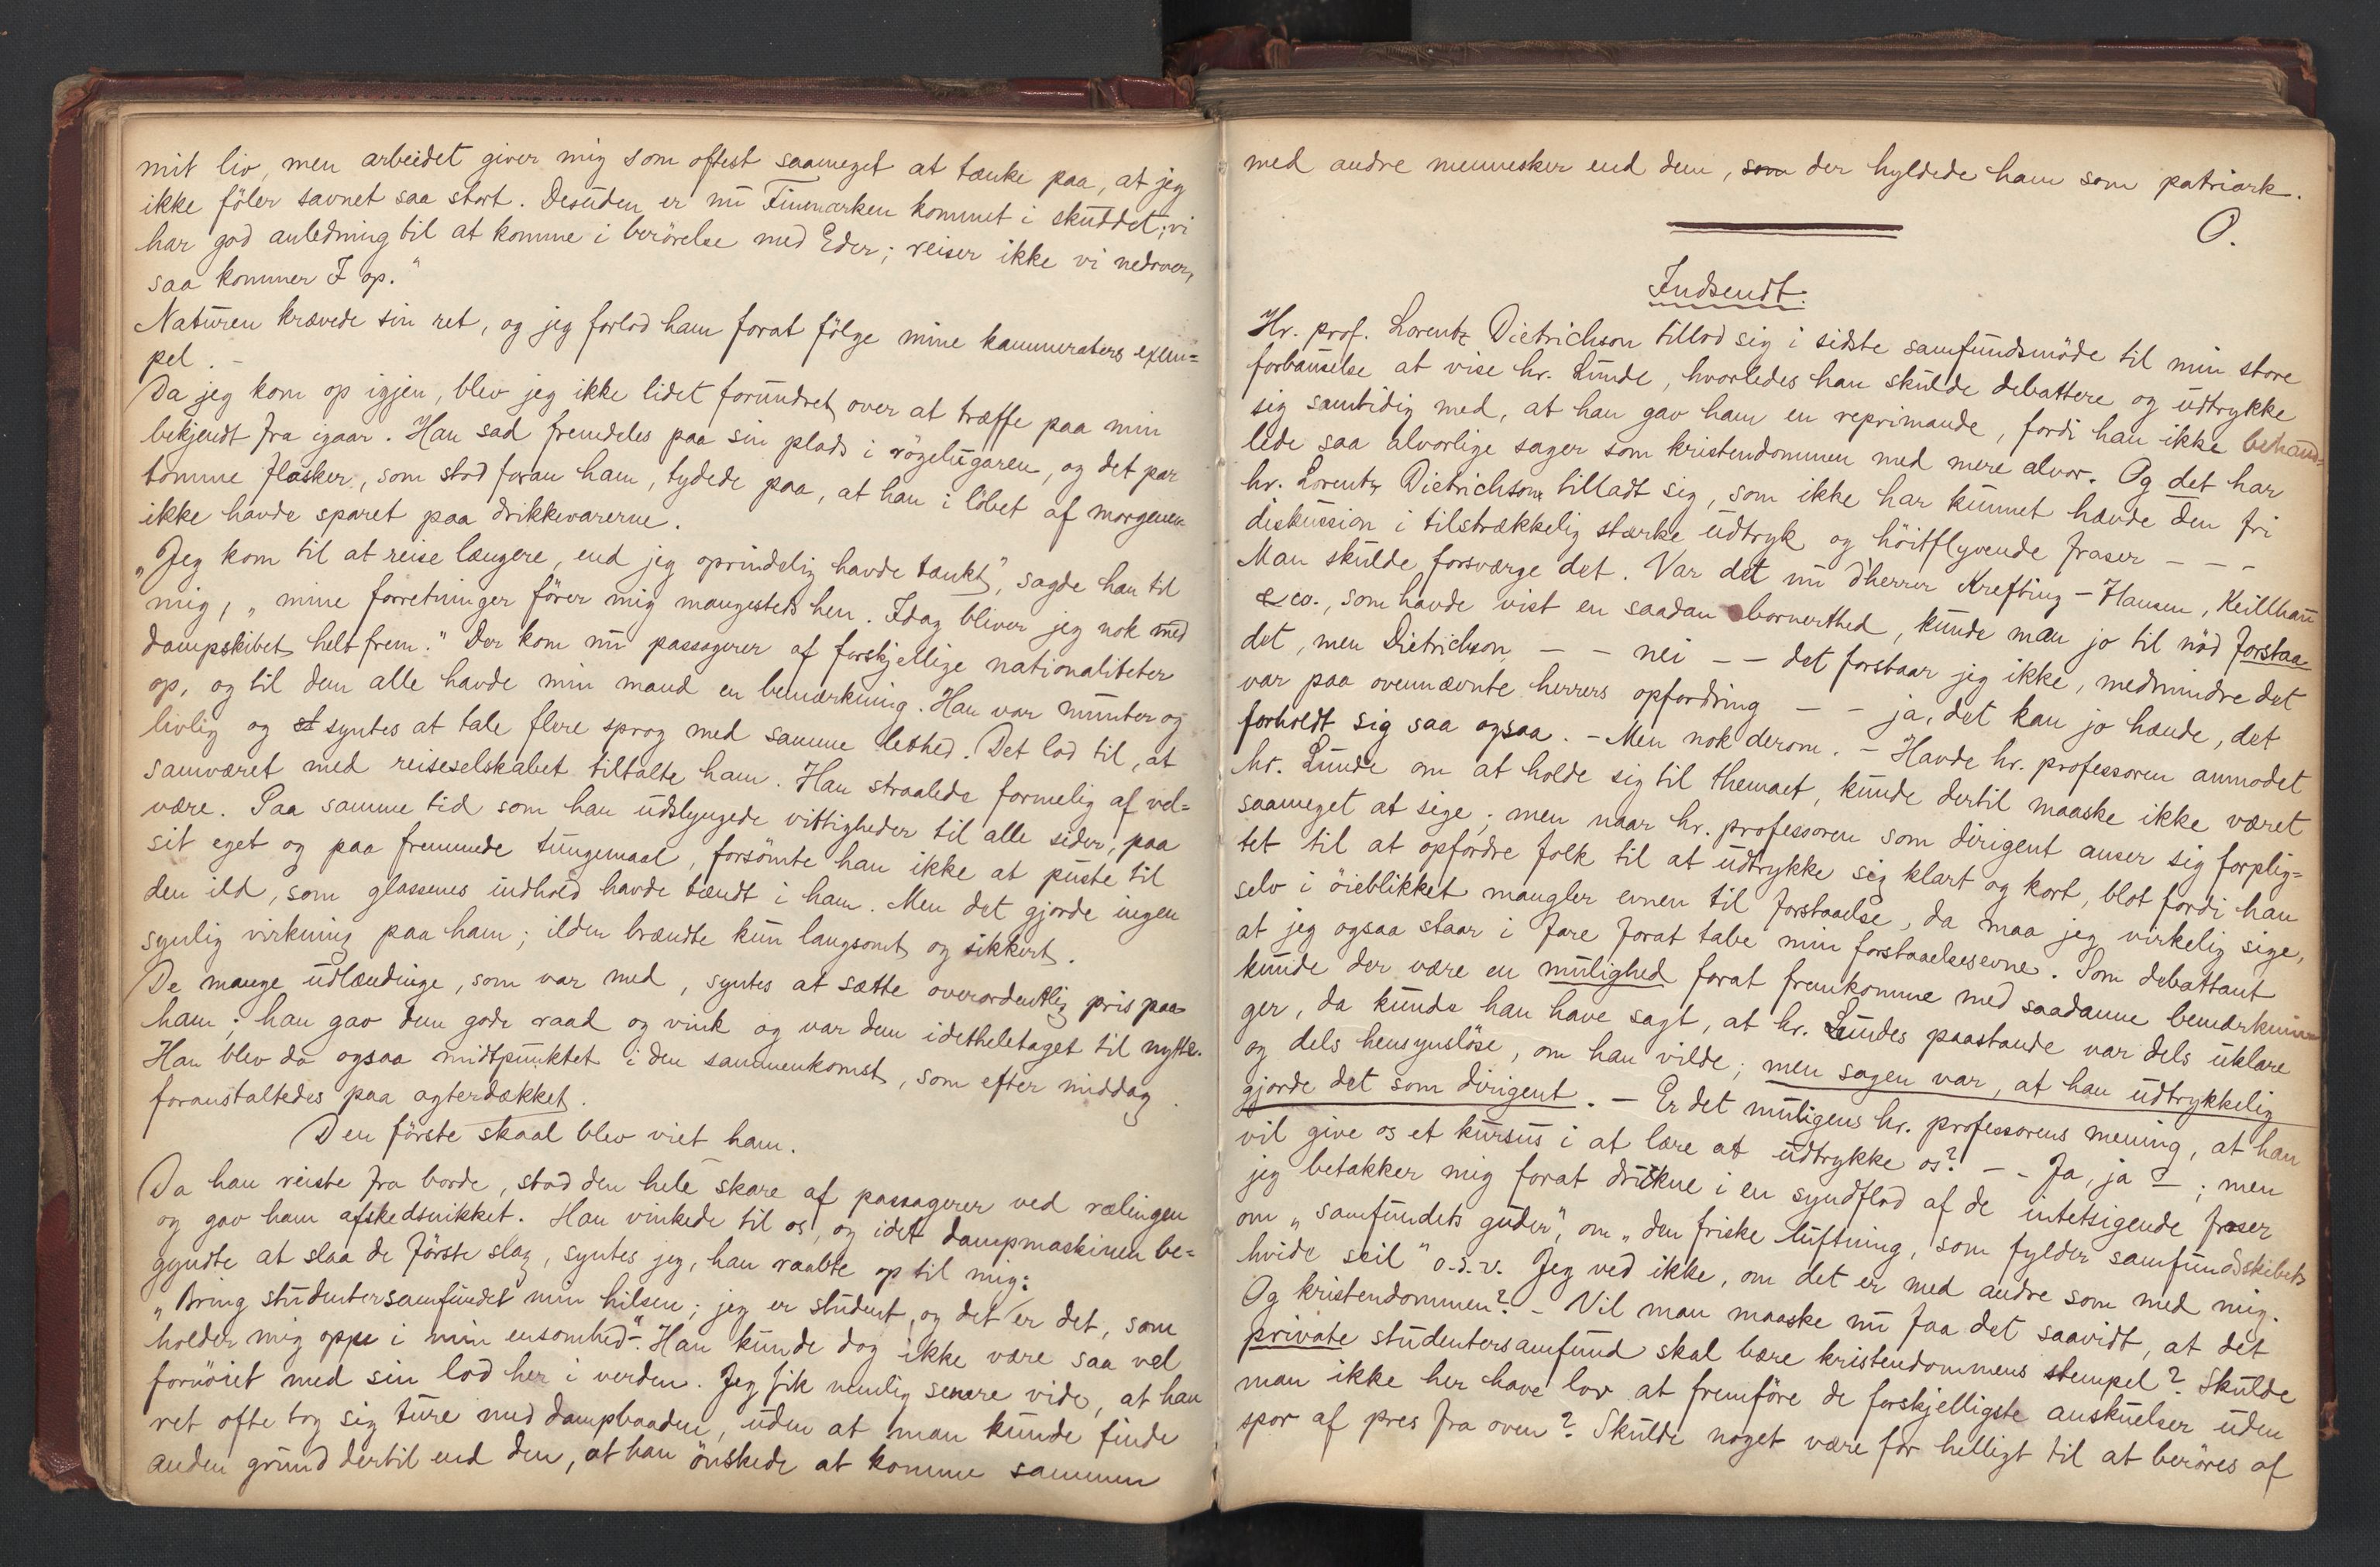 mit liv, men arbeidet giver mig som oftest saameget at tænke paa, at jeg
ikke föler savnet saa stort. Desuden er nu Finmarken kommet i skuddet; vi
har god anledning til at komme i berörelse med Eder; reiser ikke vi nedover,
saa kommer I op."
Naturen krævede sin ret, og jeg forlod ham forat fölge mine kammeraters exem=
pel. –
Da jeg kom op igjen, blev jeg ikke lidet forundret over at træffe paa min
bekjendt fra igaar. Han sad fremdeles paa sin plads i rögelugaren, og det par
tomme flasker, som stod foran ham, tydede paa, at han i löbet af morgenen
ikke havde sparet paa drikkevarerne.
„Jeg kom til at reise længere, end jeg oprindelig havde tænkt", sagde han til
mig, „mine forretninger förer mig mangesteds hen. Idag bliver jeg nok med
dampskibet helt frem." Der kom nu passagerer af forskjellige nationaliteter
op, og til dem alle havde min mand en bemærkning. Han var munter og
livlig og st syntes at tale flere sprog med samme lethed. Det lod til, at
samværet med reiseselskabet tiltalte ham. Han straalede formelig af vel=
være. Paa samme tid som han udslyngede vittigheder til alle sider, paa
sit eget og paa fremmede tungemaal, forsömte han ikke at puste til
den ild, som glassenes indhold havde tændt i ham. Men det gjorde ingen
synlig virkning paa ham; ilden brændte kun langsomt og sikkert.
De mange udlændinge, som var med, syntes at sætte overordentlig pris paa
ham; han gav dem gode raad og vink og var dem idetheletaget til nytte.
Han blev da ogsaa midtpunktet i den sammenkomst, som efter middag
foranstaltedes paa agterdækket.
Den förste skaal blev viet ham.
Da han reiste fra borde, stod den hele skare af passagerer ved rælingen
og gav ham afskedsnikket. Han vinkede til os, og idet dampmaskinen be=
gyndte at slaa de förste slag, syntes jeg, han raabte op til mig:
„Bring studentersamfundet min hilsen; jeg er student, og det er det, som
holder mig oppe i min ensomhed". Han kunde dog ikke være saa vel
fornöiet med sin lod her i verden. Jeg fik nemlig senere vide, at han
ret ofte tog sig ture med dampbaaden, uden at man kunde finde
anden grund dertil end den, at han önskede at komme sammen
med andre mennesker end dem, som der hyldede ham som patriark.
O.
Indsendt.
Hr. prof. Lorentz Dietrichson tillod sig i sidste samfundsmöde til min store
forbauselse at vise hr. Lunde, hvorledes han skulde debattere og udtrykke
sig samtidig med, at han gav ham en reprimande, fordi han ikke behand=
lede saa alvorlige sager som kristendommen med mere alvor. Og det har
hr. Lorentz Dietrichson tilladt sig, som ikke har kunnet hævde den fri
diskussion i tilstrækkelig stærke udtryk og höitflyvende fraser – – –
Man skulde forsværge det. Var det nu d'herrer Krefting-Hansen, Keilhau
& co., som havde vist en saadan bornerthed, kunde man jo til nöd forstaa
det, men Dietrichson – – nei – – det forstaar jeg ikke, medmindre det
var paa ovennævnte herrers opfordring – – ja, det kan jo hænde, det
forholdt sig saa ogsaa. – Men nok derom. – Havde hr. professoren anmodet
hr. Lunde om at holde sig til themaet, kunde dertil maaske ikke været
saameget at sige; men naar hr. professoren som dirigent anser sig forplig=
tet til at opfordre folk til at udtrykke sig klart og kort, blot fordi han
selv i öieblikket mangler evnen til forstaaelse, da maa jeg virkelig sige,
at jeg ogsaa staar i fare forat tabe min forstaaelsesevne. Som debattant
kunde der være en mulighed forat fremkomme med saadanne bemærknin=
ger, da kunde han have sagt, at hr. Lundes paastande var dels uklare
og dels hensynslöse, om han vilde; men sagen var, at han udtrykkelig
gjorde det som dirigent. – Er det muligens hr. professorens mening, at han
vil give os et kursus i at lære at udtrykke os? – – Ja, ja – ; men
jeg betakker mig forat drukne i en syndflod af de intetsigende fraser
om „samfundets guder", om „den friske luftning, som fylder samfundsskibets
hvide seil" o.s.v. Jeg ved ikke, om det er med andre som med mig.
Og kristendommen? – Vil man maaske nu faa det saavidt, at det
private studentersamfund skal bære kristendommens stempel? Skulde
man ikke her have lov at fremföre de forskjelligste anskuelser uden
spor af pres fra oven? Skulde noget være for helligt til at beröres af